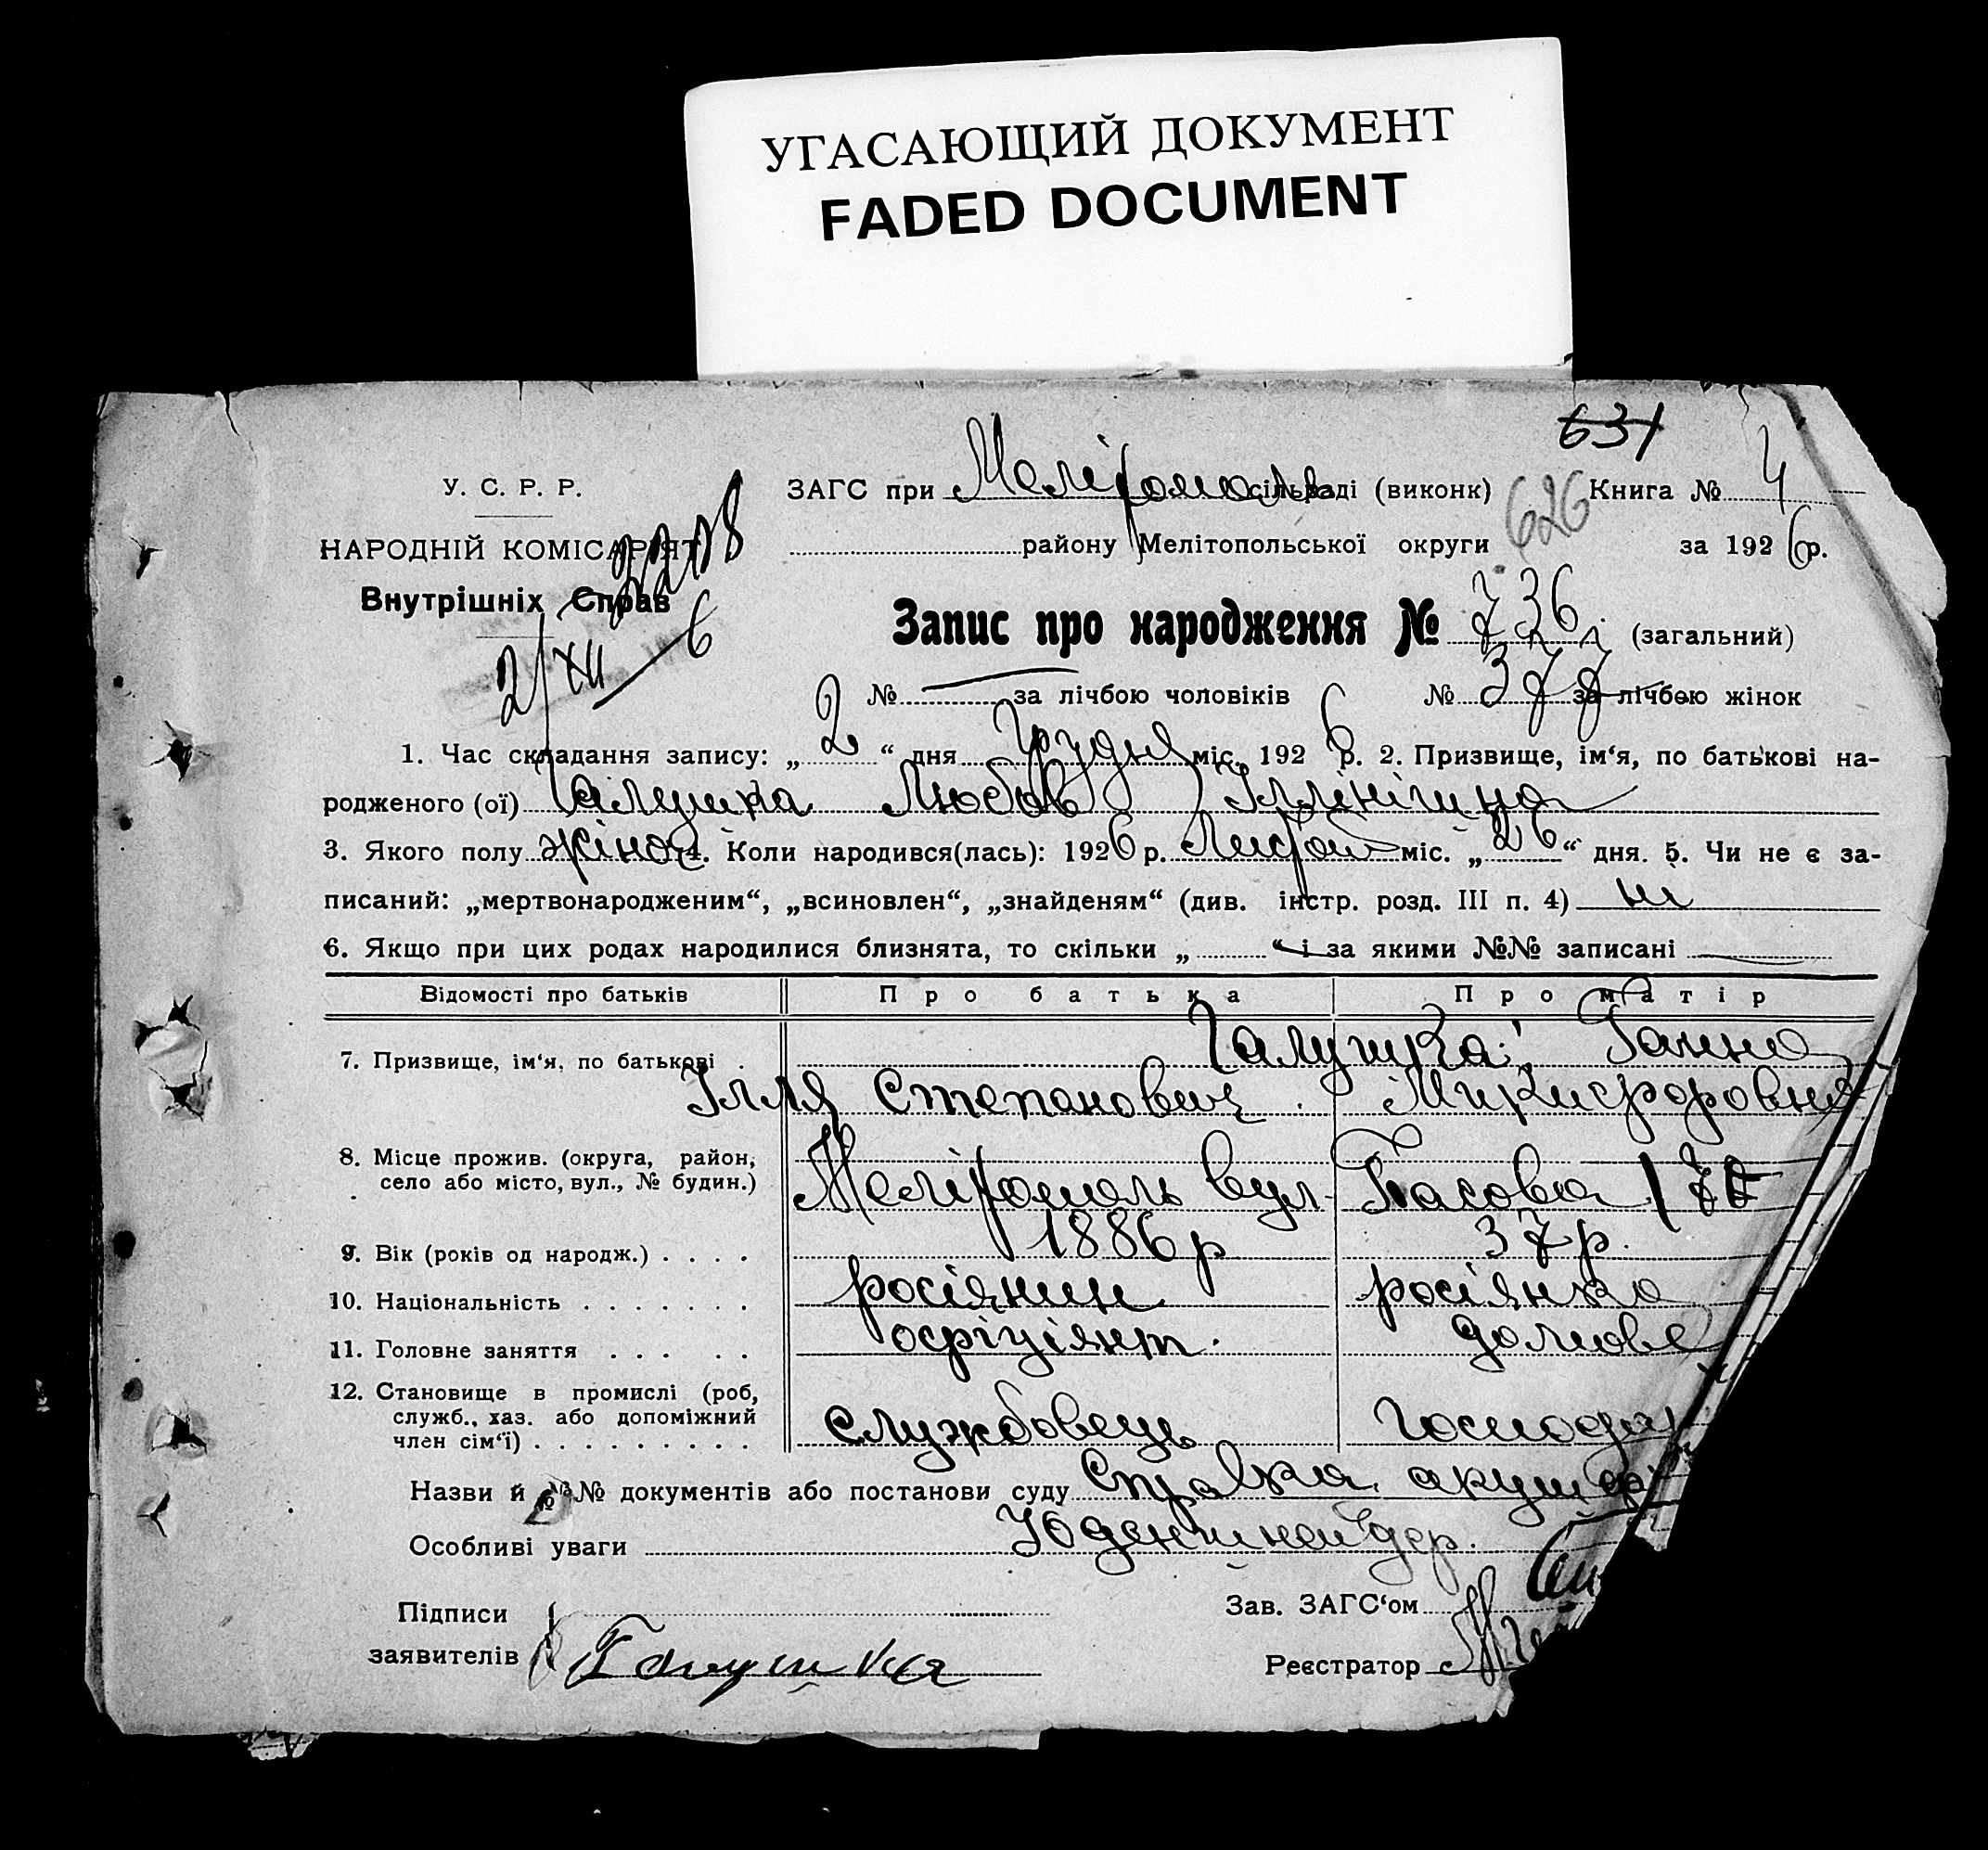 УГАСАЮЩИЙ ДОКУМЕНТ
FADED DOCUMENT
631
У. С. Р. Р.
ЗАГС при Мелітополь сільраді (виконк) 626 Книга № 4
НАРОДНІЙ КОМІСАРІЯТ
району Мелітопольської округи за 1926 р.
Внутрішніх Справ
2/XII 6
Запис про народження № 736 (загальний)
№ за лічбою чоловіків № 377 за лічбою жінок
1. Час складання запису: „2“ дня Грудня міс. 1926 р. 2. Призвище, ім‘я, по батькові на-
родженого (ої) Галушка Любов Іллінішна
3. Якого полу жіноч. 4. Коли народився(лась): 1926 р. Листопад міс. „26“ дня. 5. Чи не є за-
писаний: „мертвонародженим“, „всиновлен“, „знайденям“ (див. інстр. розд. III п. 4) ні
6. Якщо при цих родах народилися близнята, то скільки „ “ і за якими №№ записані
Відомості про батьків Про батька Про матір
7. Призвище, ім‘я, по батькові Галушка: Ганна
Ілля Степанович Микифоровна
8. Місце прожив. (округа, район,
село або місто, вул., № будин.) Мелітополь вул. Басова
9. Вік (років од народж.) 1886 р 37 р.
10. Національність росіянин росіянка
11. Головне заняття офіціянт. домове
12. Становище в промислі (роб,
служб., хаз. або допоміжний
член сім‘ї) службовець господар
Назви й №№ документів або постанови суду Справка акушер
Особливі уваги
Підписи
Зав. ЗАГС‘ом
заявителів Галушка
Реєстратор